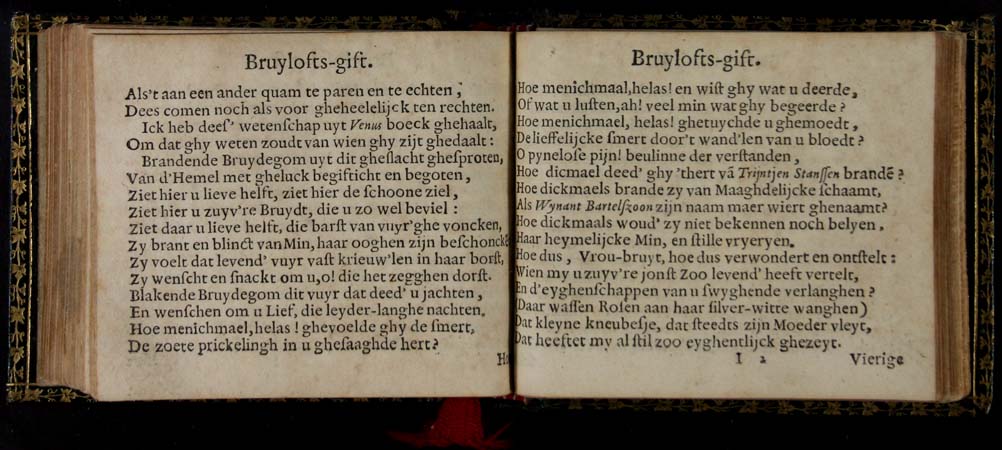 Bruylofts-gift.
Als't aan een ander quam te paren en te echten ,
Dees comen noch als voor gheheelelijck ten rechten.
Ick heb deeſ' wetenſchap uyt Venus boeck ghehaalt,
Om dat ghy weten zoudt van wien ghy zijt ghedaalt :
Brandende Bruydegom uyt dit gheſlacht gheſproten,
Van d'Hemel met gheluck begifticht en begoten ,
Ziet hier u lieve helft, ziet hier de ſchoone ziel ,
Ziet hier u zuyv're Bruydt, die u zo wel beviel :
Ziet daar u lieve helft, die barſt van vuyr'ghe voncken,
Zy brant en blinct van Min, haar ooghen zijn beſchonckẽ
Zy voelt dat levend' vuyr vaſt krieuw'len in haar borſt,
Zy wenſcht en ſnackt om u, o! die het zegghen dorſt.
Blakende Bruydegom dit vuyr dat deed' u jachten ,
En wenſchen om u Lief, die leyder-langhe nachten.
Hoe menichmael, helas ! ghevoelde ghy de ſmert,
De zoete prickelingh in u gheſaaghde hert?
Bruylofts-gift.
Hoe menichmaal, helas! en wiſt ghy wat u deerde,
Of wat u luſten, ah! veel min wat ghy begeerde ?
Hoe menichmael, helas! ghetuychde u ghemoedt ,
De lieffelijcke ſmert door't wand'len van u bloedt ?
O pyneloſe pijn! beulinne der verſtanden ,
Hoe dicmael deed' ghy 'thert vã Trijntjen Stanſſen brandẽ ?
Hoe dickmaels brande zy van Maaghdelijcke ſchaamt,
Als Wynant Bartelſzoon zijn naam maer wiert ghenaamt?
Hoe dickmaals woud' zy niet bekennen noch belyen ,
Haar heymelijcke Min, en ſtille vryeryen.
Hoe dus , Vrou-bruyt, hoe dus verwondert en ontſtelt :
Wien my u zuyv're jonſt Zoo levend' heeft vertelt,
En d'eyghenſchappen van u ſwyghende verlanghen ?
(Daar waſſen Roſen aan haar ſilver-witte wanghen)
Dat kleyne kneubeſje, dat ſteedts zijn Moeder vleyt,
Dat heeftet my al ſtil zoo eyghentlijck ghezeyt.
I 2 Vierige